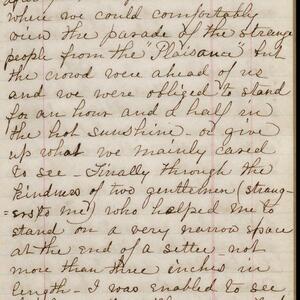 where we could comfortably
view the parade of the strange
people from the "Plaisance" but
the crowd were ahead of us
and we were obliged to stand
for an hour and a half in
the hot sunshine - or give
up what we mainly cared
to see - Finally through the
kindness of two gentlemen (strang-
ers to me) who helped me to
stand on a very narrow space
at the end of a settee - not
more than three inches in
length - I was enabled to see